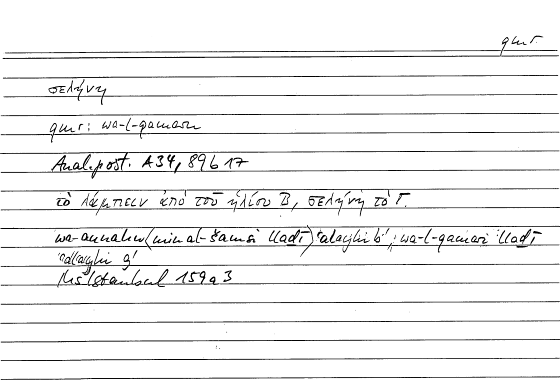 qmr.
σελήνη
qmr: wa-l-qamaru
Anal. post. A34, 89b17
τὸ λάμπειν ἀπὸ τοῦ ἡλίου B, σελήνη τὸ Γ.
wa-annahu (min al-šamsi lladī) ʿalayhi b'; wa-l-qamari lladī
ʿalayhi ǧ'
Ms Istanbul 159a3